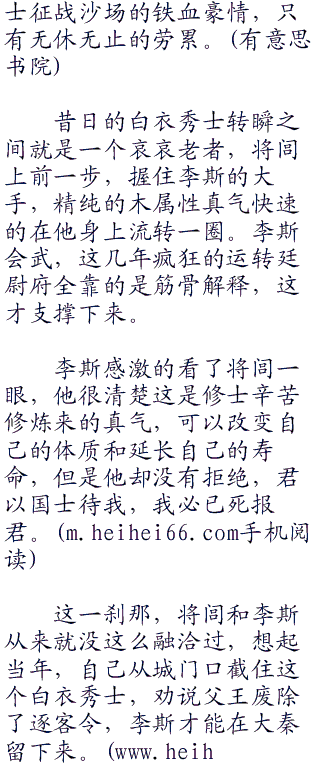 士征战沙场的铁血豪情，只
有无休无止的劳累。(有意思
书院)
昔日的白衣秀士转瞬之
间就是一个哀哀老者，将闾
上前一步，握住李斯的大
手，精纯的木属性真气快速
的在他身上流转一圈。李斯
会武，这几年疯狂的运转廷
尉府全靠的是筋骨解释，这
才支撑下来。
李斯感激的看了将闾一
眼，他很清楚这是修士辛苦
修炼来的真气，可以改变自
己的体质和延长自己的寿
命，但是他却没有拒绝，君
以国士待我，我必已死报
君。(m.heihei66.com手机阅
读)
这一刹那，将闾和李斯
从来就没这么融洽过，想起
当年，自己从城门口截住这
个白衣秀士，劝说父王废除
了逐客令，李斯才能在大秦
留下来。(www.heih